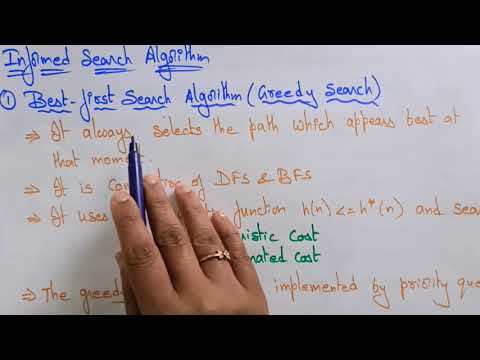 Informed Search Algorithm
① Best-first Search Algorithm (Greedy Search)
⇒ It always selects the path which appears best at
that moment.
⇒ It is of DFS & BFS
⇒ It uses function h(n)<=h*(n) and
Cost
cost
⇒ The implemented by priority